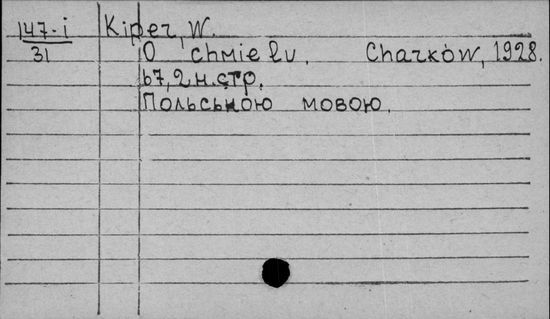 147-i Kiper, W.
31 O chmielu. Charków, 1928.
67, 2 н. стр.
Польською мовою.